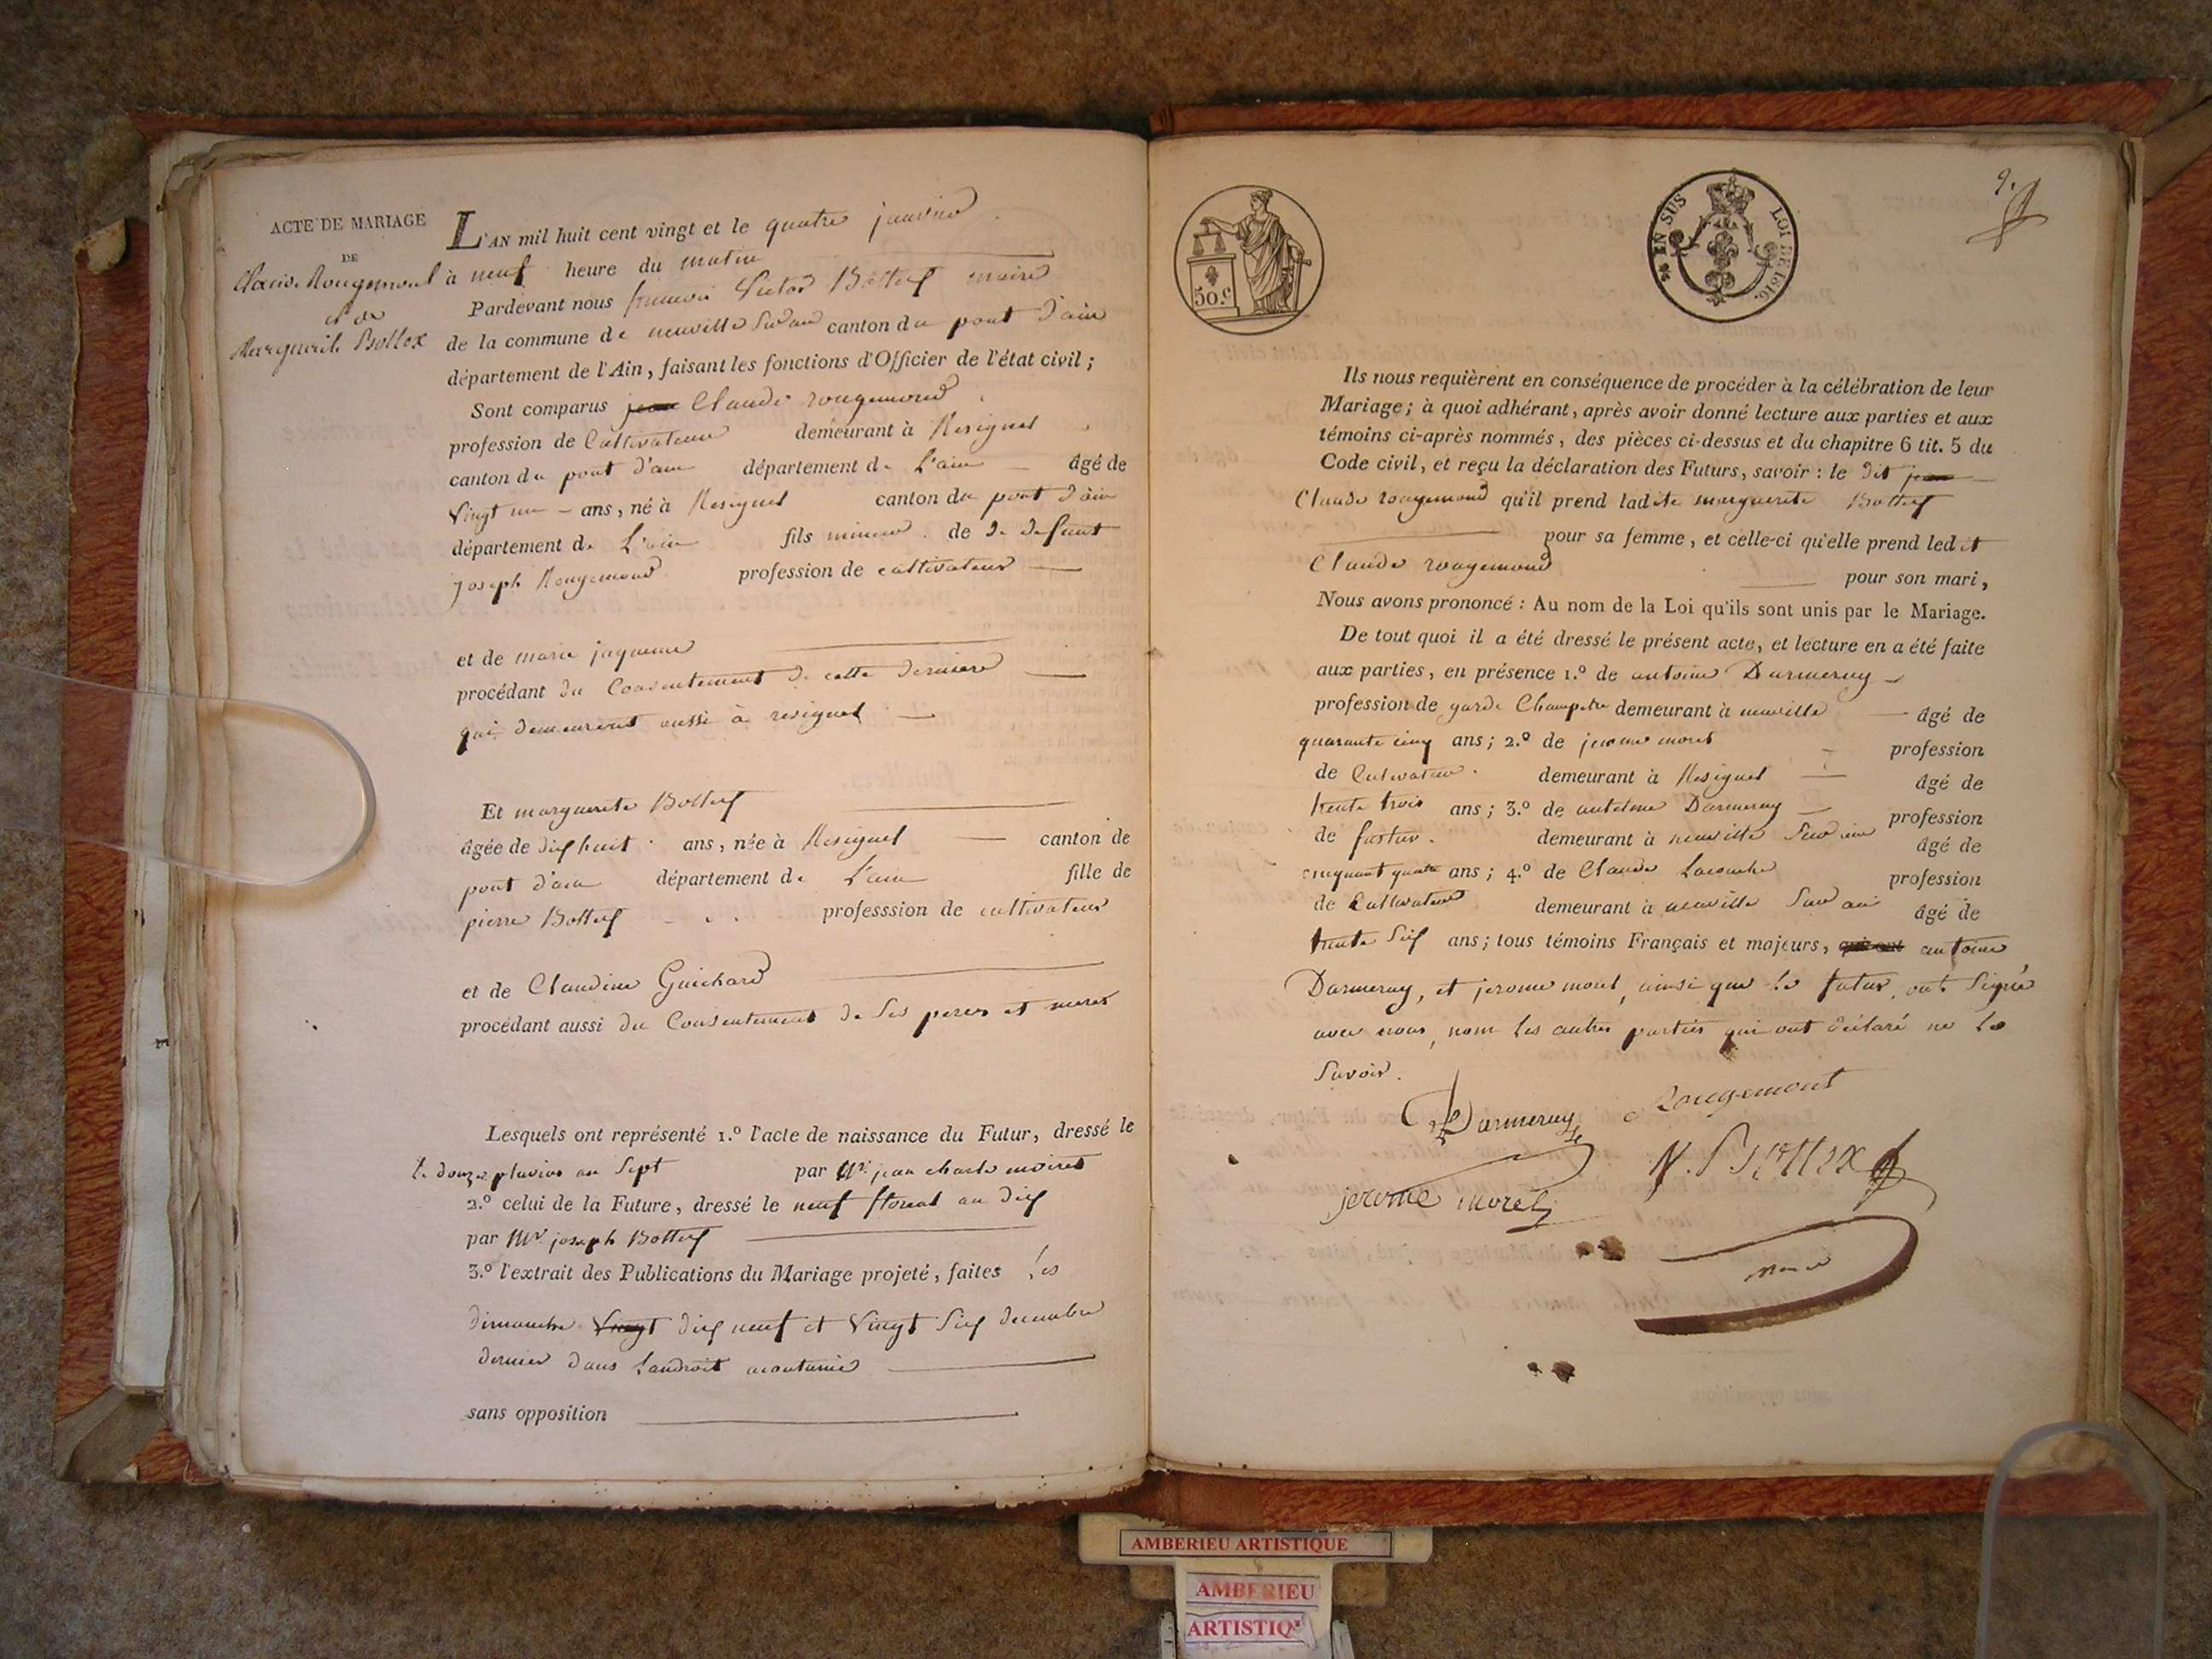 ACTE DE MARIAGE
DE
Claude Rougemont
et de
Marguerite Bottex
L'AN mil huit cent vingt et le quatre janvier
à neuf heure du matin
Pardevant nous Victor Bottex maire
de la commune de neuville Sur ain canton du pont d'ain
département de l'Ain, faisant les fonctions d'Officier de l'état civil;
Sont comparus jean Claude rougemond
profession de Cultivateur demeurant à Resignel
canton du pont d'ain département de L'ain âgé de
Vingt un ans, né à Resignel canton du pont d'ain
département de L'ain fils mineur de defunt
joseph Rougemond profession de cultivateur
et de marie jaqueme
procédant du Consentement de cette derniere
qui demeurent aussi à resignel
Et marguerite Bottex
âgée de dix huit ans, née à Resignel canton de
pont d'ain département de L'ain fille de
pierre Bottex professsion de cultivateur
et de Claudine Guichard
procédant aussi du Consentement de Ses peres et meres
Lesquels ont représenté 1.º l'acte de naissance du Futur, dressé le
le douze pluvios an Sept par Mr. jean charle
2.º celui de la Future, dressé le neuf floreal an dix
par Mr joseph Bottex
3.º l'extrait des Publications du Mariage projeté, faites les
dimanche Vingt dix neuf et Vingt Six decembre
dernier dans Landroit acoutumé
sans opposition
50.c
EN SUS
LOI DE 1816.
9.
Ils nous requièrent en conséquence de procéder à la célébration de leur
Mariage; à quoi adhérant, après avoir donné lecture aux parties et aux
témoins ci-après nommés, des pièces ci-dessus et du chapitre 6 tit. 5 du
Code civil, et reçu la déclaration des Futurs, savoir: le dit jean
Claude rougemond qu'il prend ladite marguerite Bottex
pour sa femme, et celle-ci qu'elle prend ledit
Claude rougemond pour son mari,
Nous avons prononcé: Au nom de la Loi qu'ils sont unis par le Mariage.
De tout quoi il a été dressé le présent acte, et lecture en a été faite
aux parties, en présence 1.º de antoine Darmeray
profession de garde Champetre demeurant à neuville âgé de
quarante cinq ans; 2.º de jerome morel profession
de Cultivateur demeurant à Resignel âgé de
trente trois ans; 3.º de antelme Darmeray profession
de demeurant à neuville Sur ain âgé de
cinquant quatre ans; 4.º de Claude Lacombe profession
de Cultivateur demeurant à neuville Sur ain âgé de
trente Six ans; tous témoins Français et majeurs, qui ont antoine
Darmeray, et jerome morel, ainsi que le futur, ont Signé
avec nous, nom les autres parties qui ont déclaré ne le
Savoir.
Darmeray
Rougemont
jerome morel
V. Bottex
Maire
AMBERIEU ARTISTIQUE
AMBERIEU
ARTISTIQ